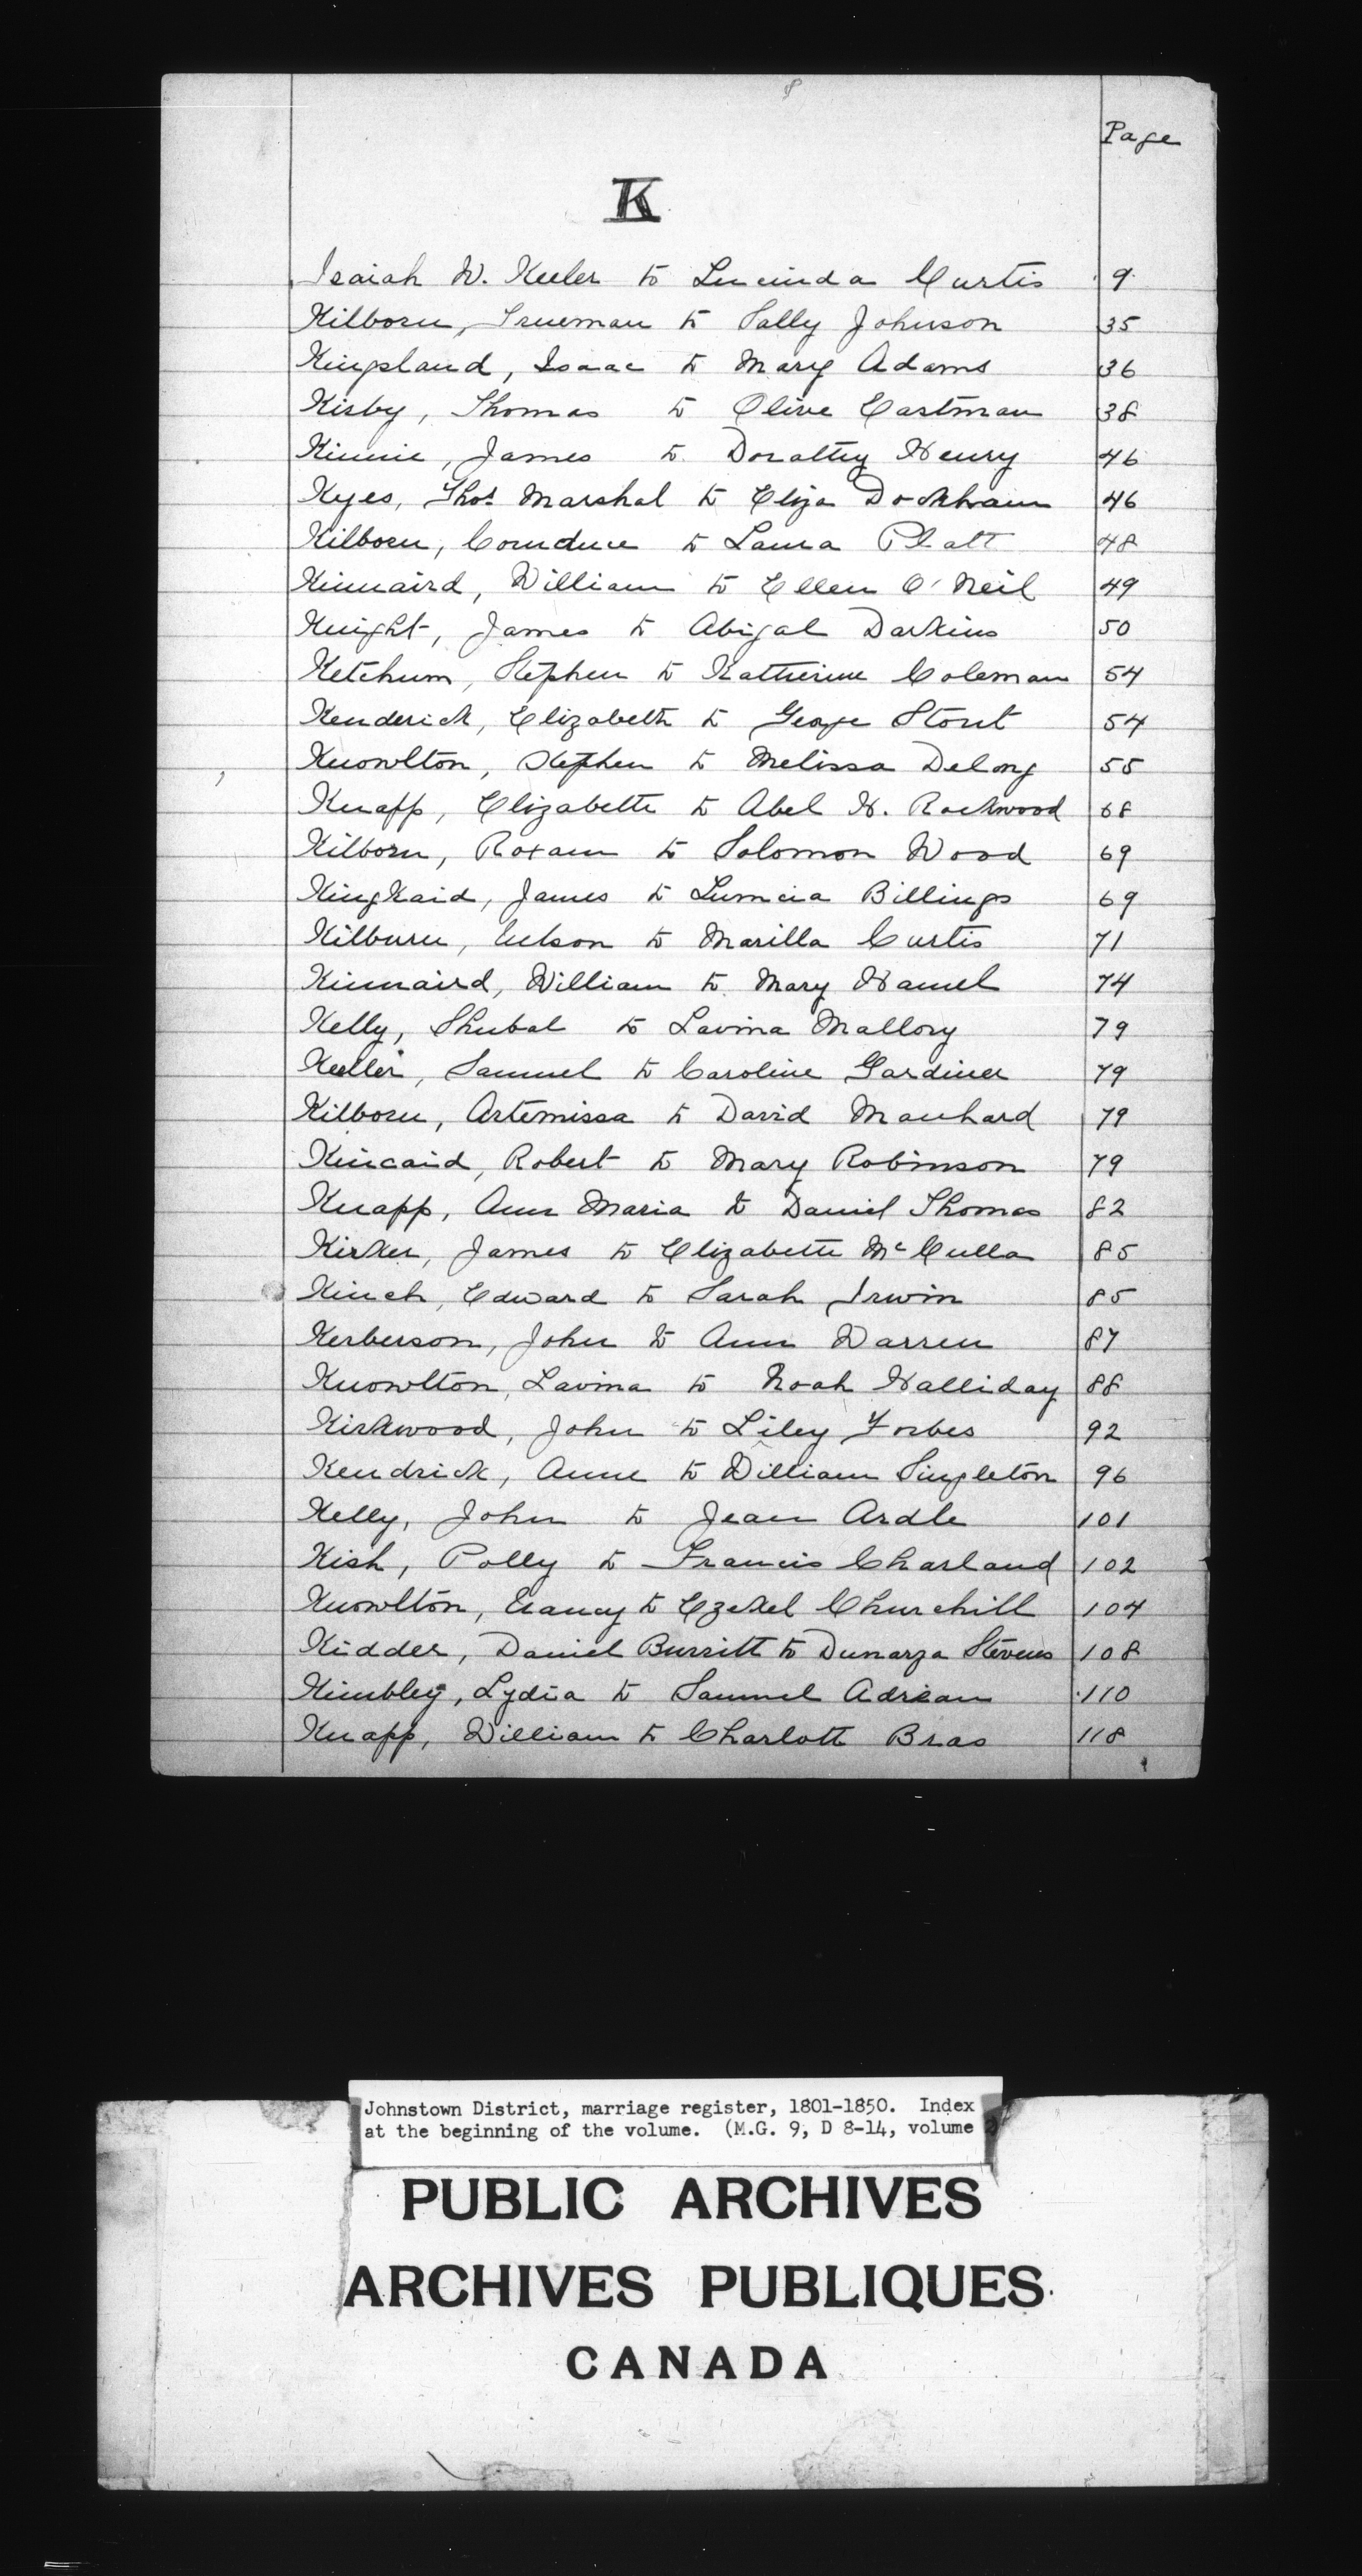 8
Page
K
Isaiah W. Keeler to Lucinda Curtis 9
Kilborn, Trueman to Sally Johnson 35
Kingsland, Isaac to Mary Adams 36
Kisby, Thomas to Olive Eastman 38
Kinnie, James to Dorathy Henry 46
Kyes, Thos Marshal to Eliza Dockham 46
Kilborn, to Laura Platt 48
Kinnaird, William to Ellen O'Neil 49
Knight, James to Abigal Darkins 50
Ketchum, Stephen to Katherine Coleman 54
Kenderick, Elizabeth to George Stout 54
Knowlton, Stephen to Melissa Delong 55
Knapp, Elizabeth to Abel H. Rockwood 68
Kilborn, Roxam to Solomon Wood 69
Kingkaid, James to Billings 69
Kilburn, Nelson to Marilla Curtis 71
Kinnaird, William to Mary Hamel 74
Kelly, Shubal to Lavina Mallory 79
Keeler, Samuel to Caroline Gardiner 79
Kilborn, Artemissa to David Manhard 79
Kincaid, Robert to Mary Robinson 79
Knapp, Ann Maria to Daniel Thomas 82
Kirker, James to Elizabeth McCulla 85
Kinch, Edward to Sarah Irwin 85
Kerberson, John to Ann Warren 87
Knowlton, Lavina to Noah Halliday 88
Kirkwood, John to Liley Forbes 92
Kendrick, Anne to William Singleton 96
Kelly, John to Jean Ardle 101
Kish, Polly to Francis Charland 102
Knowlton, Nancy to Ezekel Churchill 104
Kidder, Daniel Burritt to Dunarza Stevens 108
Kimbley, Lydia to Samuel Adrean 110
Knapp, William to Charlott Bras 118
Johnstown District, marriage register, 1801-1850. Index
at the beginning of the volume. (M.G. 9, D 8-14, volume
PUBLIC ARCHIVES
ARCHIVES PUBLIQUES
CANADA